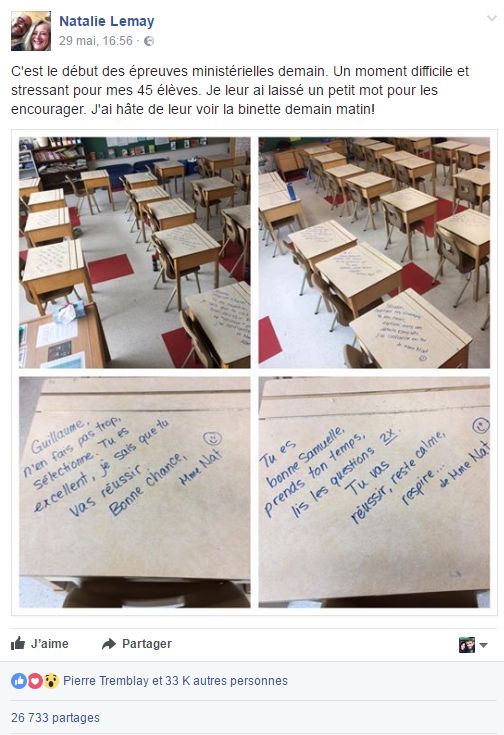 Natalie Lemay
29 mai, 16:56 ·
C'est le début des épreuves ministérielles demain. Un moment difficile et
stressant pour mes 45 élèves. Je leur ai laissé un petit mot pour les
encourager. J'ai hâte de leur voir la binette demain matin!
Guillaume,
n'en fais pas trop,
sélectionne. Tu es
excellent, je sais que tu
vas réussir
Bonne chance,
Mme Nat
Tu es
bonne Samuelle,
prends ton temps,
lis les questions 2x.
Tu vas
réussir, reste calme,
respire...
de Mme Nat
J'aime
Partager
Pierre Tremblay et 33 K autres personnes
26 733 partages